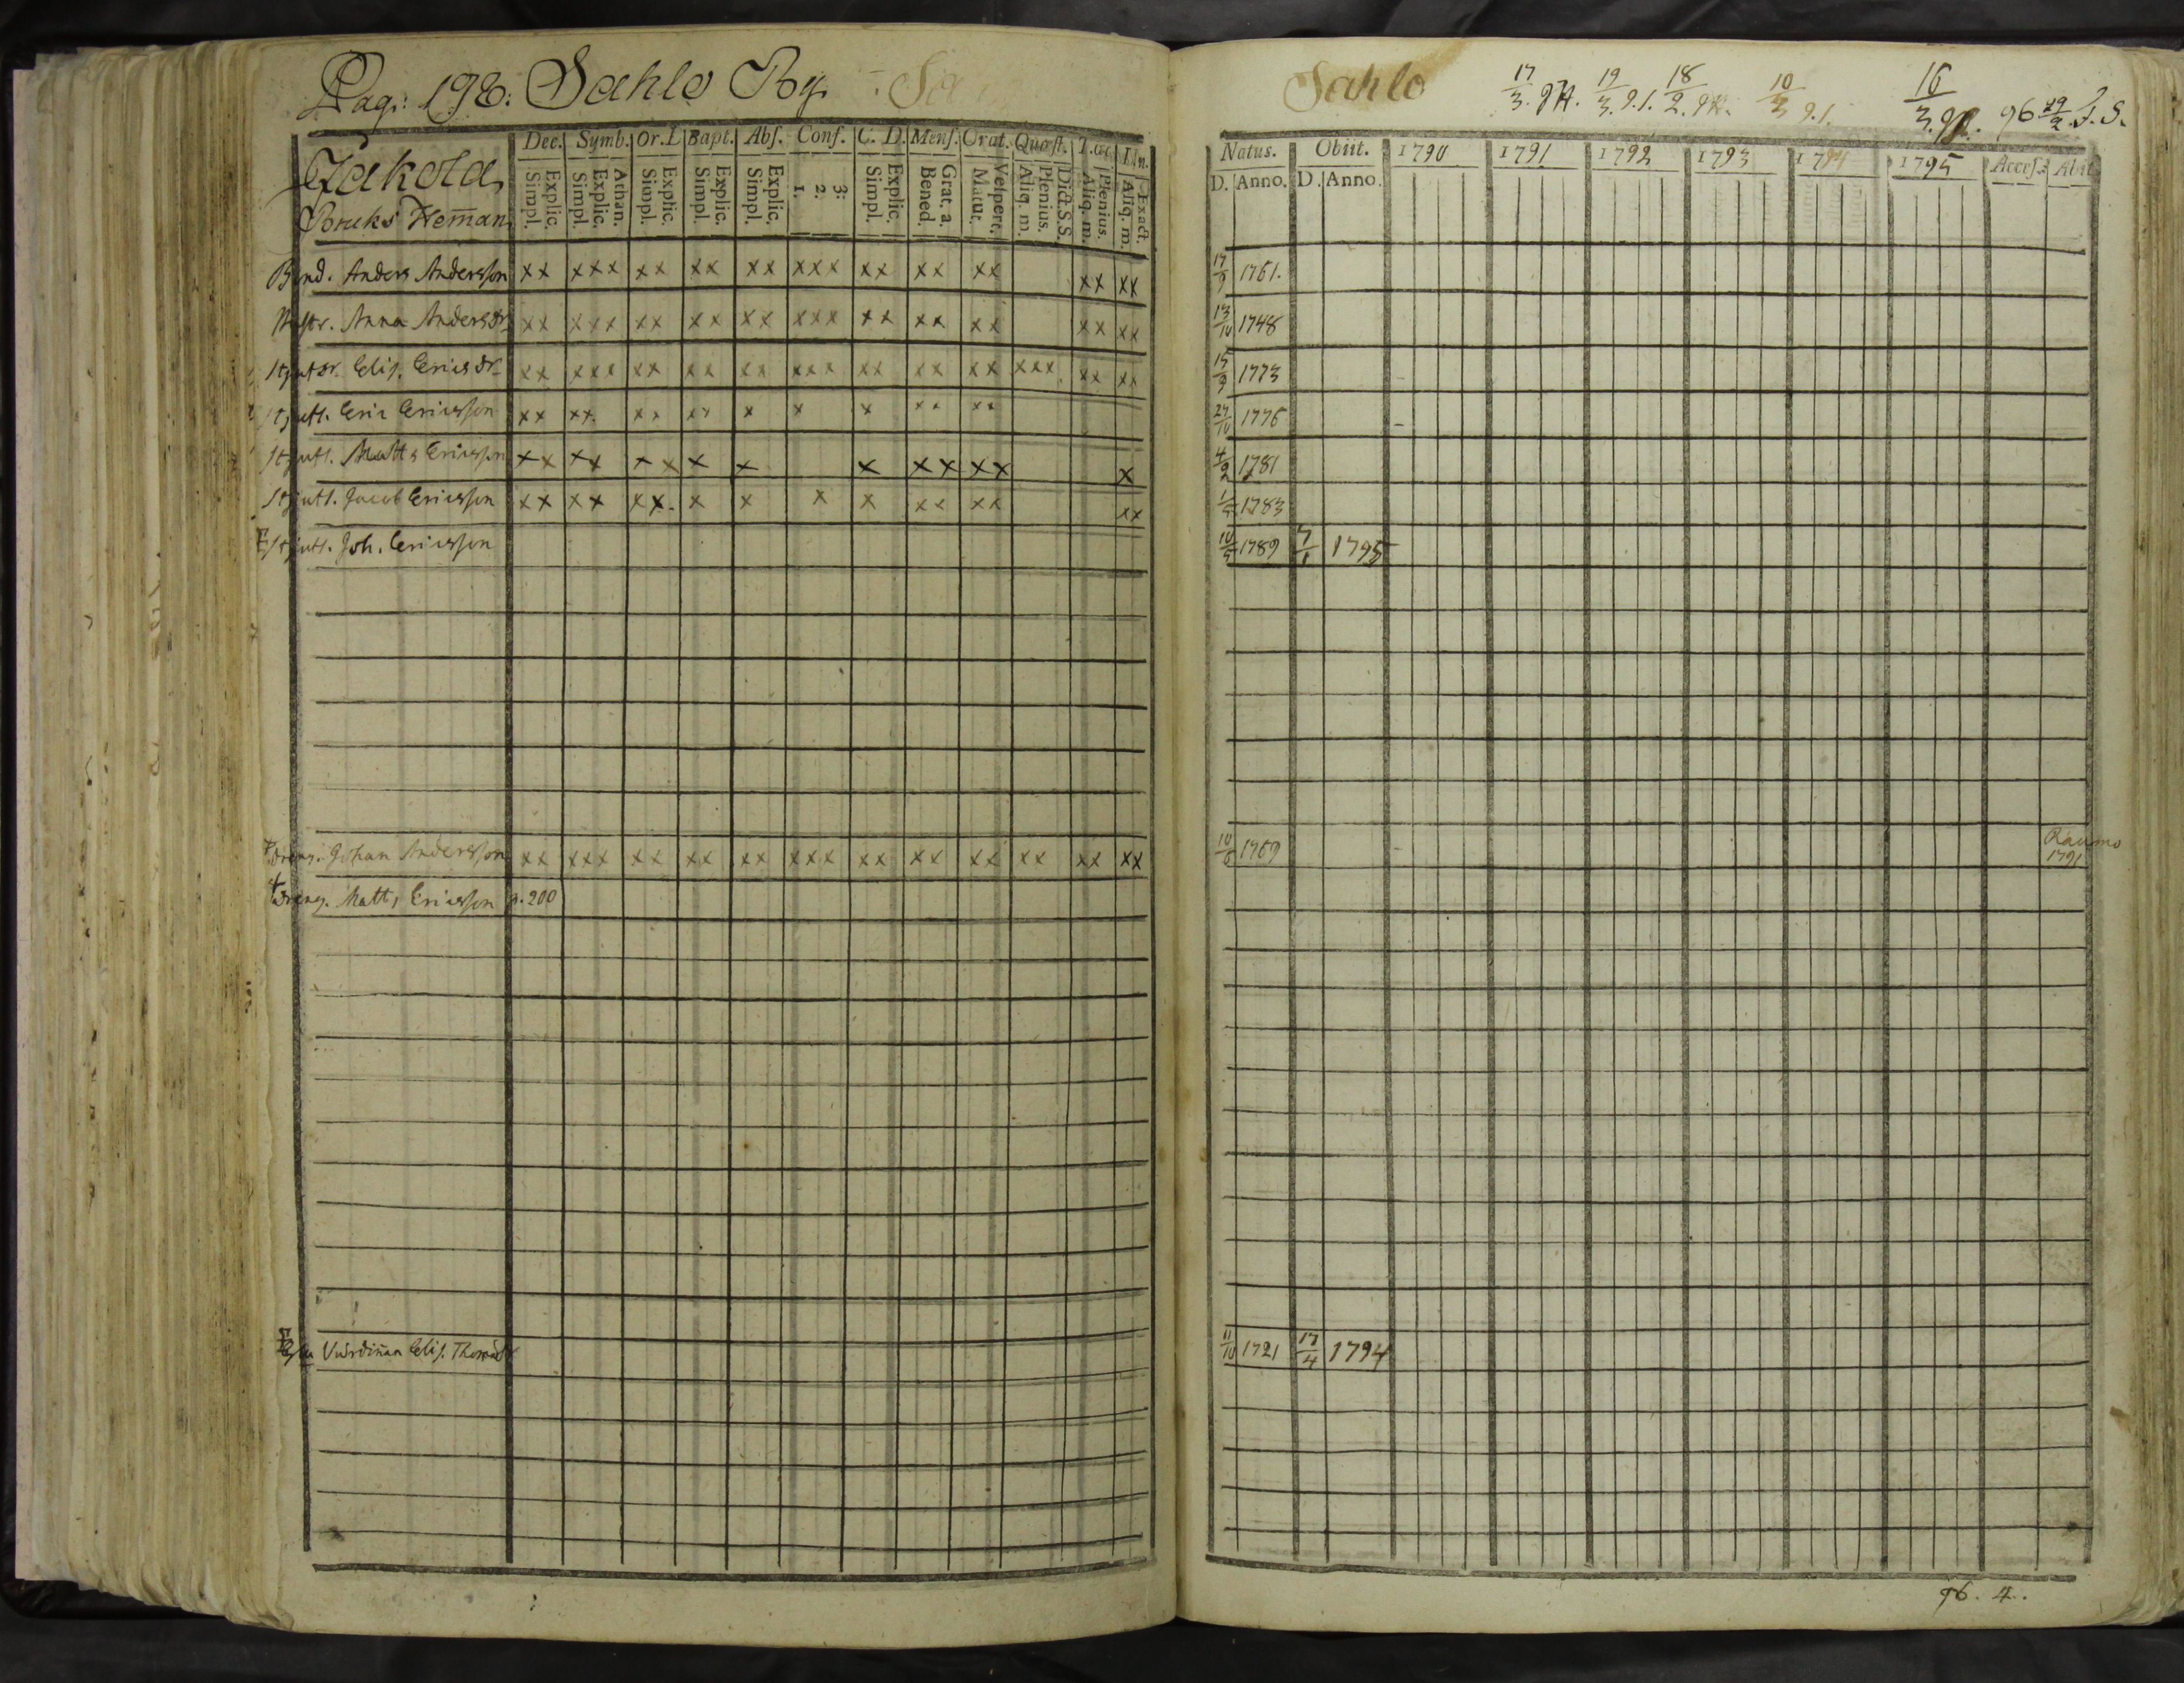 Pag: 198: Sahlo By.
Dec. Symb. Or. D Bapt. Abs. Conf. C. D. Mens. Orat. Quæst. T. œc Lin.
Explic. Simpl. Athan. Explic. Simpl. Explic. Simpl. Explic. Simpl. Explic. Simpl. 3: 2: 1. Explic. Simpl. Grat. a. Bened. Vespert. Matut. Dict. S.S. Plenius. Aliq. m. Plenius. Aliq. m. Exact. Aliq. m.
Jakola
Bruks Hem̄an
Bond. Anders Andersson xx xxx xx xx xx xxx xx xx xx xx xx
Anna Andersdr xx xxx xx xx xx xxx xx xx xx xx xx
Stjufdr. Elis. Ericsdr xx xxx xx xx xx xxx xx xx xx xxx xx xx
Stjufs. Eric Ericsson xx xx xx xx x x x xx xx
Stjufs. Matts Ericsson xx xx xx x x x xx xx x
Stjufs. Jacob Ericsson xx xx xx x x x x xx xx xx
Stjufs. Joh. Ericsson
Dreng. Johan Andersson xx xxx xx xx xx xxx xx xx xx xx xx xx
Dreng. Matts Ericsson p. 200
Elis. Thomædr
Sahlo 17/3. 19/3. 9.1. 18/2. 10/3 9.1. 16/3. 96 29/2 J. S.
Natus. Obiit. 1790 1791 1792 1793 1794 1795 Access. Abit.
D. Anno. D. Anno.
17/9 1761.
13/10 1748
15/9 1773
27/10 1776
4/2 1781
1783
10/5 1789 7/1 1795
10/6 1769 Raumo 1791
11/10 1721 17/4 1794
96. 4.